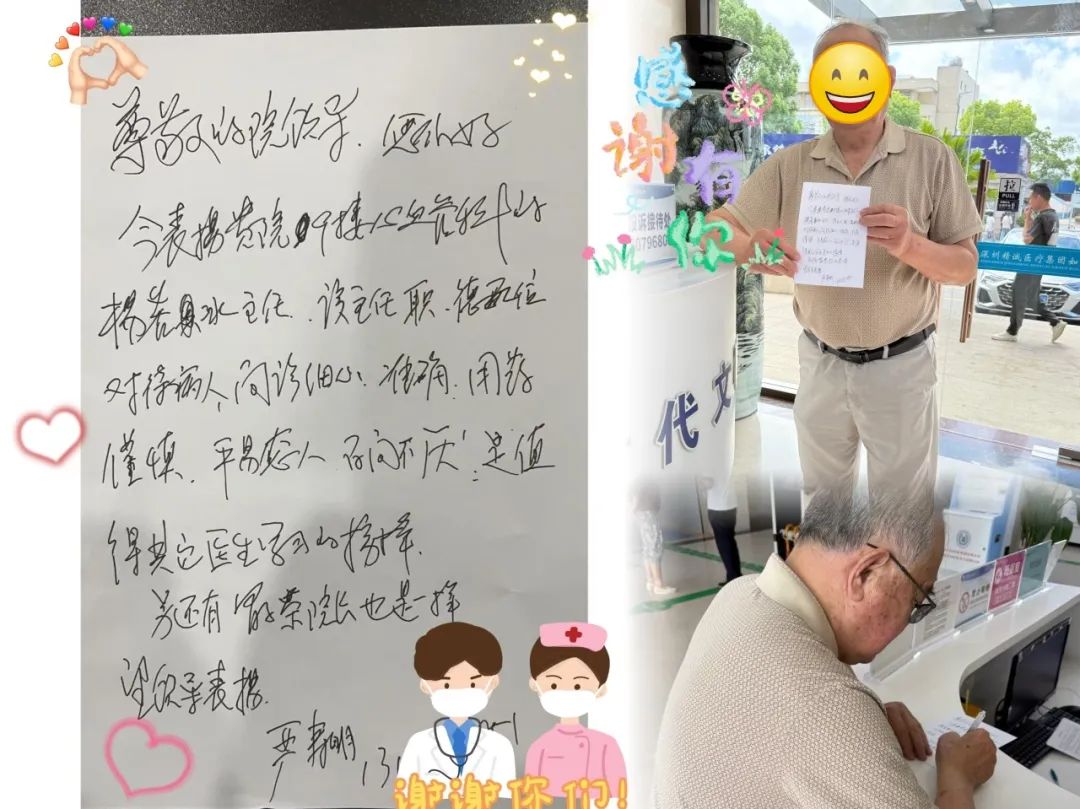 尊敬的院领导，您们好
今表扬贵院9楼心血管科的
主任、该主任职、德配位
对待病人，问诊细心、准确，用药
谨慎、平易近人、百问不厌！是值
得其它医生学习的榜样，
另还有 院长也是一样
望领导表扬。
严
13
谢谢你们！
感谢有你
投诉接待处
079680
代
文
拉
PULL
深圳精诚医疗集团如